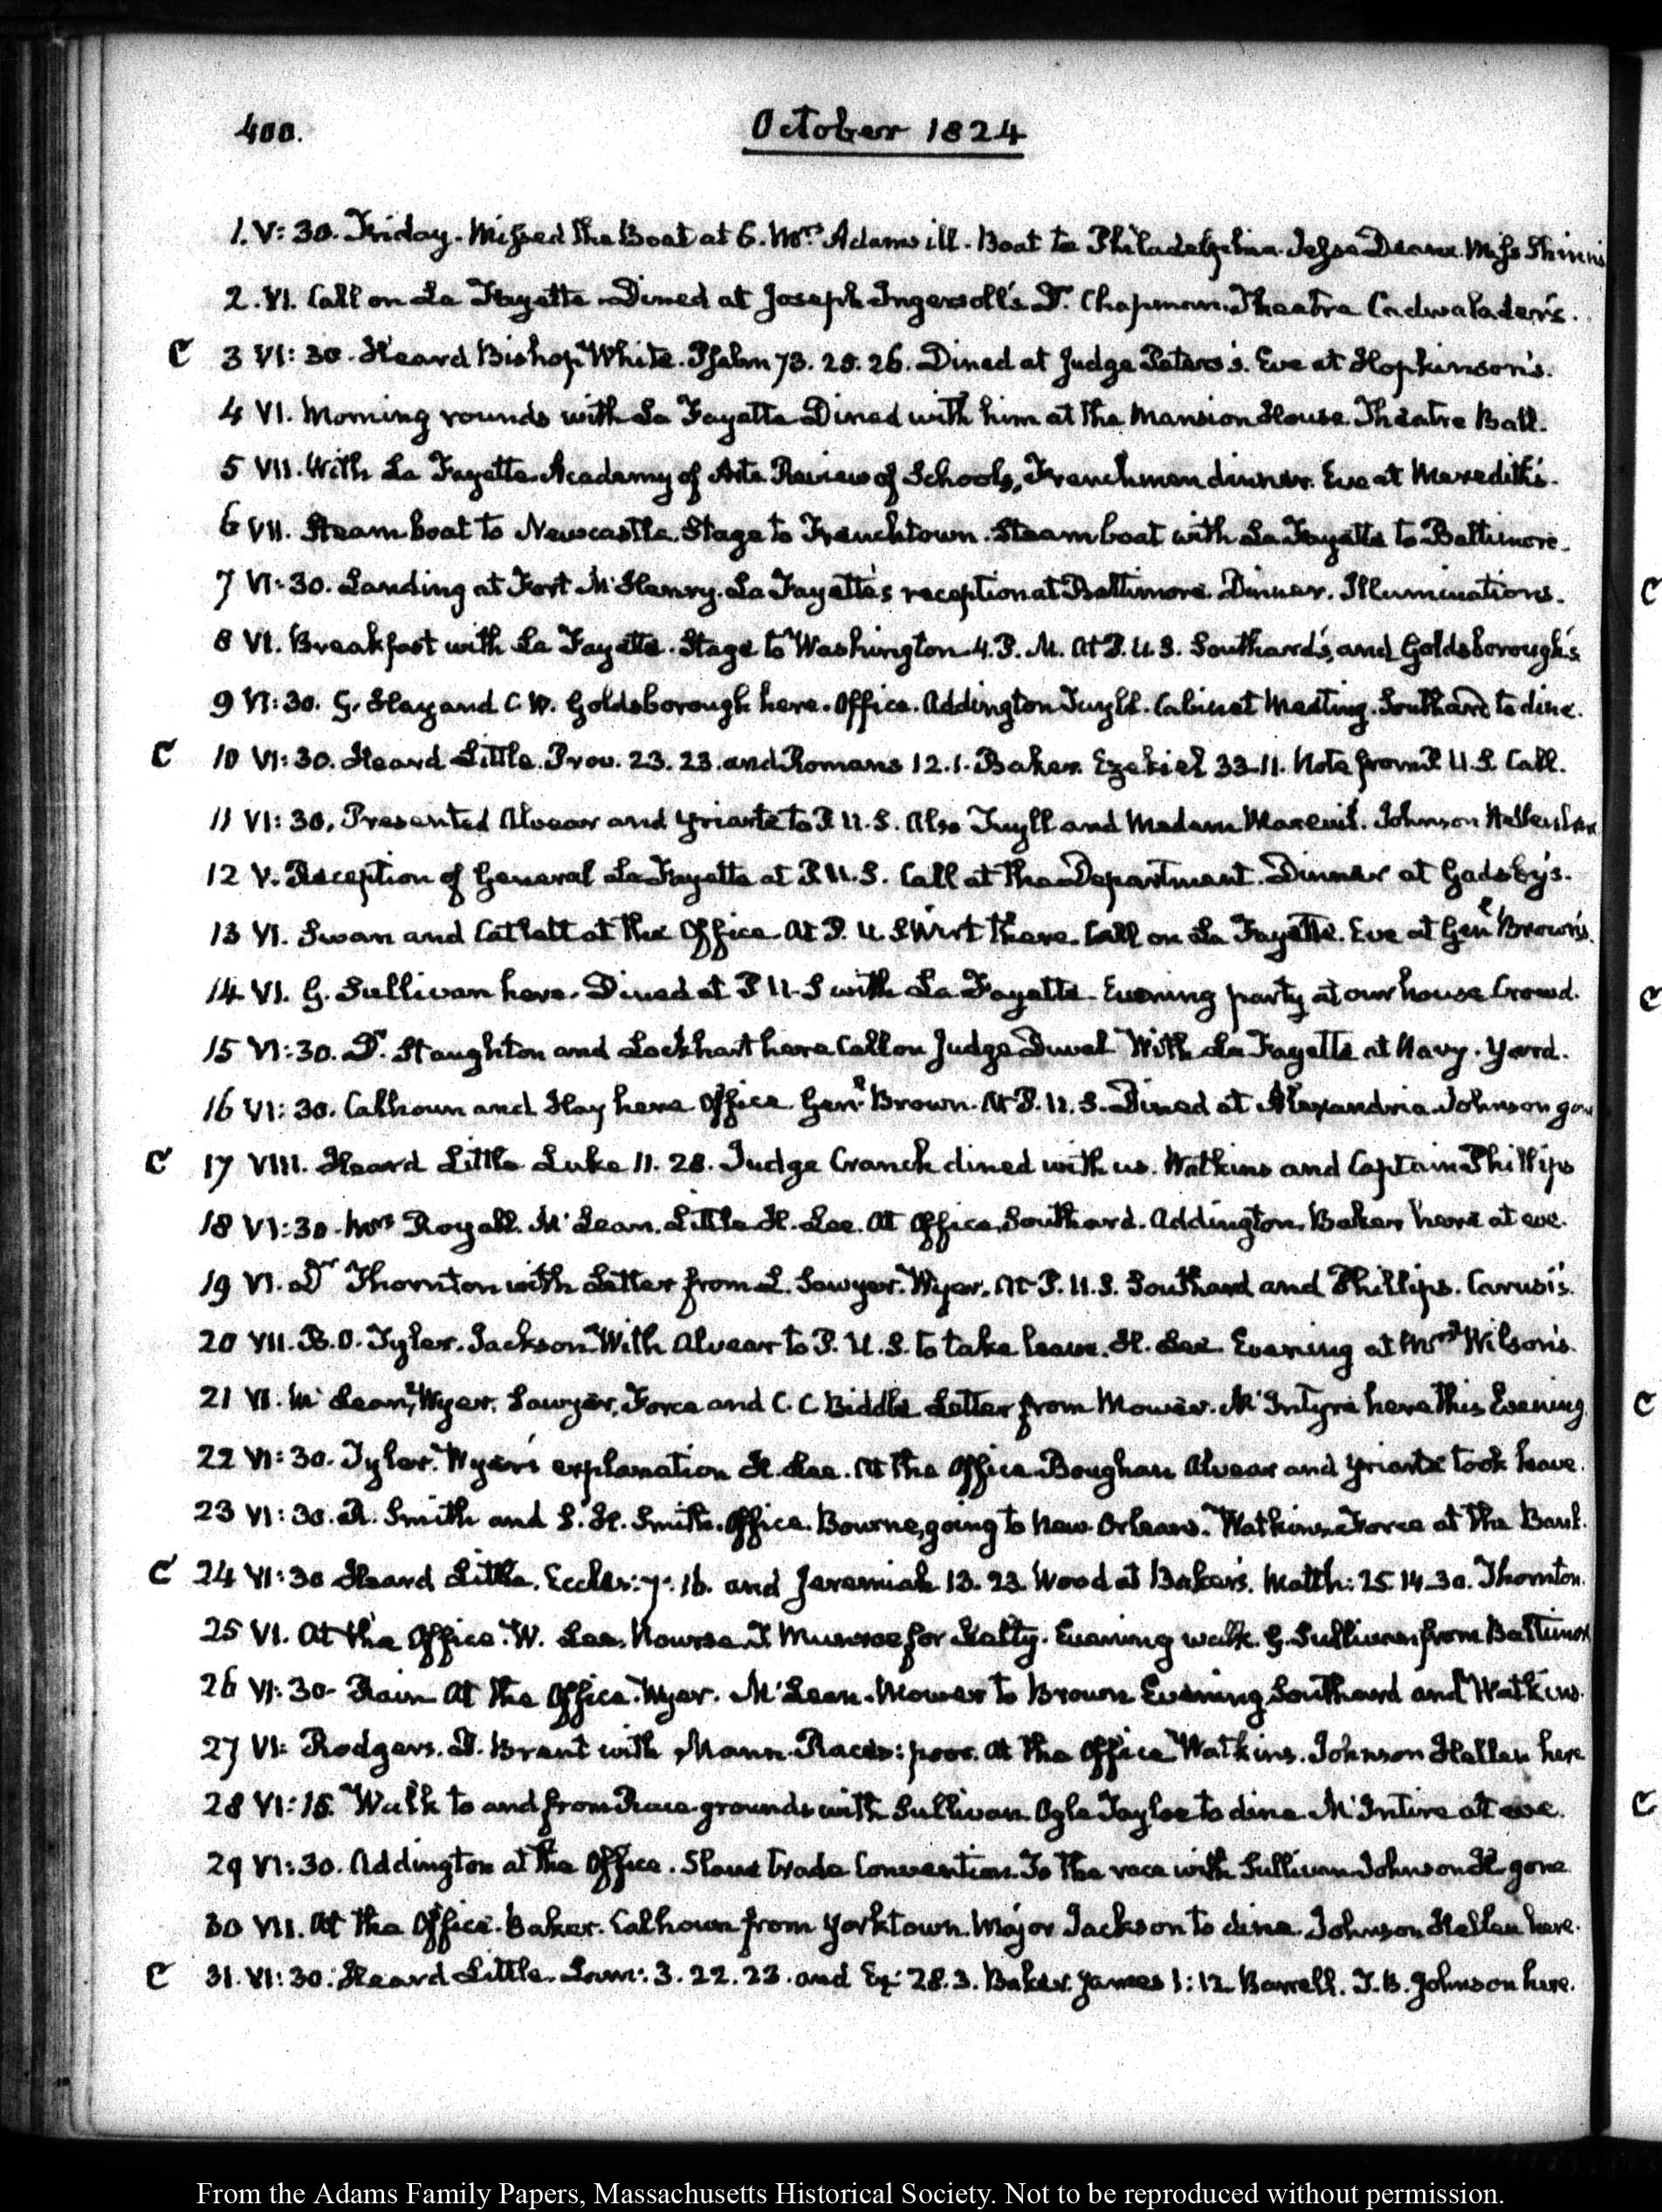 400.
October 1824
1. V: 30. Friday. Missed the Boat at 6. Mrs. Adams ill. Boat to Philadelphia. Jesse Deane. Miss
2. VI. Call on La Fayette Dined at Joseph Ingersoll's Dr. Chapman. Theatre Cadwalader's.
C 3 VI: 30. Heard Bishop White. Psalm 73. 25. 26. Dined at Judge Peters's. Eve at Hopkinson's.
4 VI. Morning rounds with La Fayette Dined with him at the Mansion House. Theatre Ball.
5 VII. With La Fayette. Academy of Arts. Review of Schools, Frenchmen dinner. Eve at Meredith's.
6 VII. Steam boat to Newcastle. Stage to Frenchtown. Steam boat with La Fayette to Baltimore.
7 VI: 30. Landing at Fort McHenry. La Fayette's reception at Baltimore. Dinner. Illuminations.
8 VI. Breakfast with La Fayette. Stage to Washington 4. P. M. At P. U. S. Southard's, and Goldsborough's
9 VI: 30. G. Hay and C. W. Goldsborough here. Office. Addington Tuyll. Cabinet Meeting. Southard to dine.
C 10 VI: 30. Heard Little. Prov. 23. 23. and Romans 12. 1. Baker. Ezekiel 33. 11. Note from P. U. S. Call.
11 VI: 30. Presented Alvear and Yriarte to P. U. S. Also Tuyll and Madam Mareuil. Johnson Hellen
12 V. Reception of General La Fayette at P. U. S. Call at the Department. Dinner at Gadsby's.
13 VI. Swan and Catlett at the Office. At P. U. S Wirt there. Call on La Fayette. Eve at Genl. Brown's.
14 VI. G. Sullivan here. Dined at P U. S with La Fayette. Evening party at our house Crowd.
15 VI: 30. Dr. Staughton and Lockhart here Call on Judge Duval With La Fayette at Navy. Yard.
16 VI: 30. Calhoun and Hay here Office. Genl. Brown. At P. U. S. Dined at Alexandria. Johnson gone
C 17 VIII. Heard Little Luke 11. 28. Judge Cranch dined with us. Watkins and Captain Phillips
18 VI: 30. Mrs Royall. McLean. Little H. Lee. At Office, Southard. Addington. Baker here at eve.
19 VI. Dr Thornton with Letter from L. Sawyer. Wyer. At P. U. S. Southard and Phillips. Carusi's.
20 VII. B. O. Tyler. Jackson With Alvear to P. U. S. to take leave. H. Lee. Evening at Mrs Wilson's.
21 VI. McLean, Wyer, Sawyer, Force and C. C Biddle Letter from Mower. McIntyre here this Evening
22 VI: 30. Tyler. Wyer's explanation H. Lee. At the Office Boughan Alvear and Yriarte took leave.
23 VI: 30. R. Smith and S. H. Smith. Office. Bourne, going to New Orleans. Watkins. Force at the Bank.
C 24 VI: 30 Heard Little. Eccles: 7: 16. and Jeremiah 13. 23 Wood at Baker's. Matth: 25. 14-30. Thornton.
25 VI. At the Office. W. Lee. Nourse. T Munroe for Kelty. Evening walk. G. Sullivan from Baltimore
26 VI: 30- Rain At the Office. Wyer. McLean. Mower to Brown Evening Southard and Watkins.
27 VI: Rodgers. D. Brent with Mann. Races: poor. At the Office Watkins. Johnson Hellen here
28 VI: 15. Walk to and from Race-grounds with Sullivan Ogle Tayloe to dine. McIntire at eve.
29 VI: 30. Addington at the Office. Slave trade Convention. To the race with Sullivan Johnson H gone
30 VII. At the Office. Baker. Calhoun from Yorktown. Major Jackson to dine. Johnson Hellen here.
C 31. VI: 30. Heard Little. Lam: 3. 22. 23. and Ez: 28. 3. Baker. James 1: 12. Barrell. T. B. Johnson here.
C
C
C
C
From the Adams Family Papers, Massachusetts Historical Society. Not to be reproduced without permission.